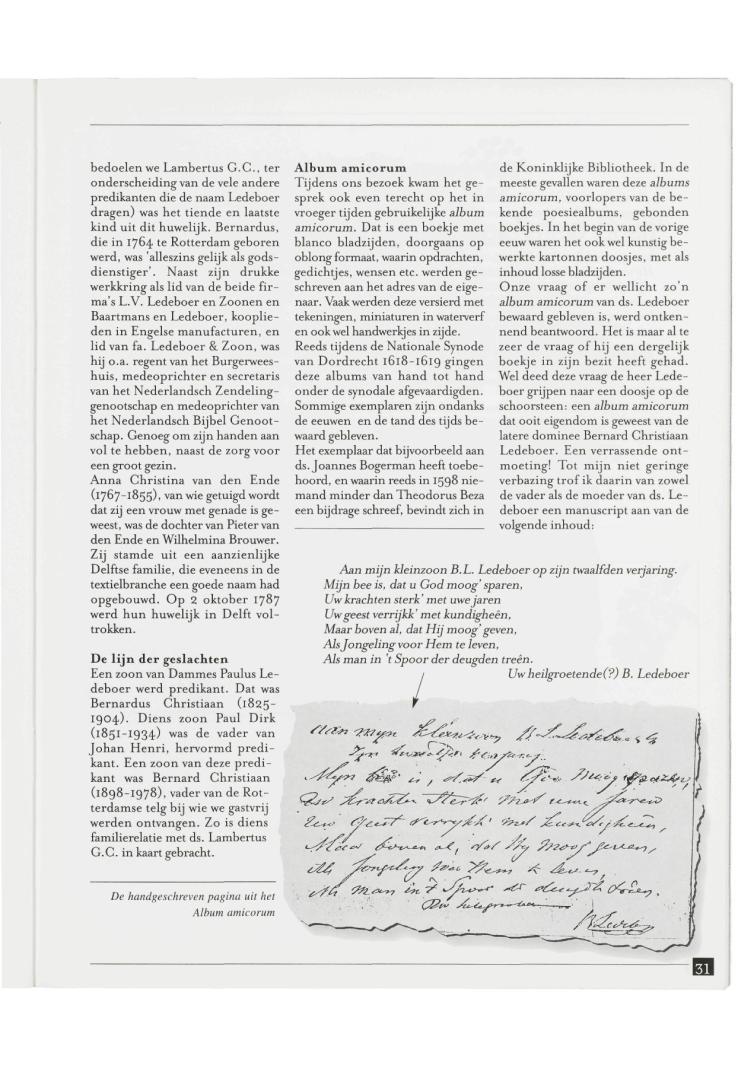 bedoelen we Lambertus G.C., ter
onderscheiding van de vele andere
predikanten die de naam Ledeboer
dragen) was het tiende en laatste
kind uit dit huwelijk. Bernardus,
die in 1764 te Rotterdam geboren
werd, was 'alleszins gelijk als gods-
dienstiger'. Naast zijn drukke
werkkring als lid van de beide fir-
ma's L.V. Ledeboer en Zoonen en
Baartmans en Ledeboer, kooplie-
den in Engelse manufacturen, en
lid van fa. Ledeboer & Zoon, was
hij o.a. regent van het Burgerwees-
huis, medeoprichter en secretaris
van het Nederlandsch Zendeling-
genootschap en medeoprichter van
het Nederlandsch Bijbel Genoot-
schap. Genoeg om zijn handen aan
vol te hebben, naast de zorg voor
een groot gezin.
Anna Christina van den Ende
(1767-1855), van wie getuigd wordt
dat zij een vrouw met genade is ge-
weest, was de dochter van Pieter van
den Ende en Wilhelmina Brouwer.
Zij stamde uit een aanzienlijke
Delftse familie, die eveneens in de
textielbranche een goede naam had
opgebouwd. Op 2 oktober 1787
werd hun huwelijk in Delft vol-
trokken.
De lijn der geslachten
Een zoon van Dammes Paulus Le-
deboer werd predikant. Dat was
Bernardus Christiaan (1825-
1904). Diens zoon Paul Dirk
(1851-1934) was de vader van
Johan Henri, hervormd predi-
kant. Een zoon van deze predi-
kant was Bernard Christiaan
(1898-1978), vader van de Rot-
terdamse telg bij wie we gastvrij
werden ontvangen. Zo is diens
familierelatie met ds. Lambertus
G.C. in kaart gebracht.
De handgeschreven pagina uit het
Album amicorum
Album amicorum
Tijdens ons bezoek kwam het ge-
sprek ook even terecht op het in
vroeger tijden gebruikelijke album
amicorum. Dat is een boekje met
blanco bladzijden, doorgaans op
oblong formaat, waarin opdrachten,
gedichtjes, wensen etc. werden ge-
schreven aan het adres van de eige-
naar. Vaak werden deze versierd met
tekeningen, miniaturen in waterverf
en ook wel handwerkjes in zijde.
Reeds tijdens de Nationale Synode
van Dordrecht 1618-1619 gingen
deze albums van hand tot hand
onder de synodale afgevaardigden.
Sommige exemplaren zijn ondanks
de eeuwen en de tand des tijds be-
waard gebleven.
Het exemplaar dat bijvoorbeeld aan
ds. Joannes Bogerman heeft toebe-
hoord, en waarin reeds in 1598 nie-
mand minder dan Theodorus Beza
een bijdrage schreef, bevindt zich in
de Koninklijke Bibliotheek. In de
meeste gevallen waren deze albums
amicorum, voorlopers van de be-
kende poesiealbums, gebonden
boekjes. In het begin van de vorige
eeuw waren het ook wel kunstig be-
werkte kartonnen doosjes, met als
inhoud losse bladzijden.
Onze vraag of er wellicht zo'n
album amicorum van ds. Ledeboer
bewaard gebleven is, werd ontken-
nend beantwoord. Het is maar al te
zeer de vraag of hij een dergelijk
boekje in zijn bezit heeft gehad.
Wel deed deze vraag de heer Lede-
boer grijpen naar een doosje op de
schoorsteen: een album amicorum
dat ooit eigendom is geweest van de
latere dominee Bernard Christiaan
Ledeboer. Een verrassende ont-
moeting! Tot mijn niet geringe
verbazing trof ik daarin van zowel
de vader als de moeder van ds. Le-
deboer een manuscript aan van de
volgende inhoud:
Aan mijn kleinzoon B.L. Ledeboer op zijn twaalfden verjaring.
Mijn bee is, dat u God moog' sparen,
Uw krachten sterk' met uwe jaren
Uw geest verrijkk' met kundigheên,
Maar boven al, dat Hij moog' geven,
Als Jongeling voor Hem te leven,
Als man in 't Spoor der deugden treên.
Uw heilgroetende(?) B. Ledeboer
Aan mijn kleinzoon B.L. Ledeboer
Zyn twaalfden verjaring
Myn bee is, dat u God moog sparen,
Uw krachten sterk' met uwe jaren
Uw geest verrykk' met kundigheên,
Maar boven al, dat Hy moog geven,
Als Jongeling voor Hem te leven,
Als man in 't Spoor der deugden treên.
31